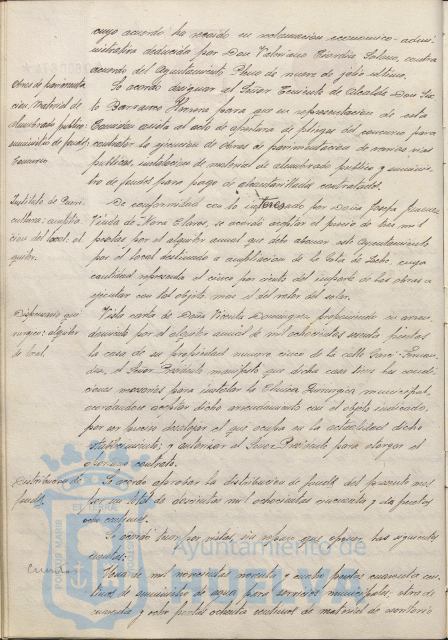 cuyo acuerdo ha recaido en reclamacion economico-admi-
nistrativa deducida por Don Valeriano
acuerdo del Ayuntamiento Pleno de nueve de julio ultimo.
Obras de pavimenta-
cion. Material de
alumbrado publico:
suministro de fondos.
Concurso
Se acordó designar al Señor Teniente de Alcalde Don
Barranco Herrera para que en representación de esta
Comision asista al acto de apertura de pliegos del concurso para
contratar la ejecucion de obras de pavimentacion de varias vias
publicas, instalacion de material de alumbrado publico y suminis-
tro de fondos para pago de alcantarillado contratados.
Instituto de Pueri-
cultura: amplia-
cion del local: al-
quiler.
De conformidad con lo interesado por Doña Josefa
Viuda de Mora Claros, se acordó aceptar el precio de tres mil
pesetas por el alquiler anual que debe abonar este Ayuntamiento
por el local destinado a ampliacion de la Gota de Leche, cuya
cantidad representa el cinco por ciento del importe de las obras a
ejecutar con tal objeto, mas el del valor del solar.
Dispensario qui-
rurgico: alquiler
de local.
Vista carta de Doña Vicenta Dominguez proponiendo en arren-
damiento por el alquiler anual de mil ochocientas pesetas
la casa de su propiedad numero cinco de la calle Garci-Fernan-
dez, el Señor Presidente manifestó que dicha casa tiene las condi-
ciones necesarias para instalar la Clinica Quirurgica municipal,
acordandose aceptar dicho arrendamiento con el objeto indicado,
por ser preciso desalojar el que ocupa en la actualidad dicho
establecimiento; y autorizar al Señor Presidente para otorgar el
oportuno contrato.
Distribucion de
fondos
Se acordó aprobar la distribucion de fondos del presente mes
por su total de doscientas mil ochocientas cincuenta y dos pesetas
ocho centimos.
Cuentas
Se acordó tambien vistas, sin reparo que oponer, las siguientes
cuentas:
Una de mil novecientas noventa y cuatro pesetas cuarenta cen-
timos de suministro de agua para servicios municipales; otra de
cuarenta y ocho pesetas ochenta centimos de material de escritorio
Ayuntamiento de
HUELVA
PORTUS MARIS
ET TERRAE
CUSTODIA